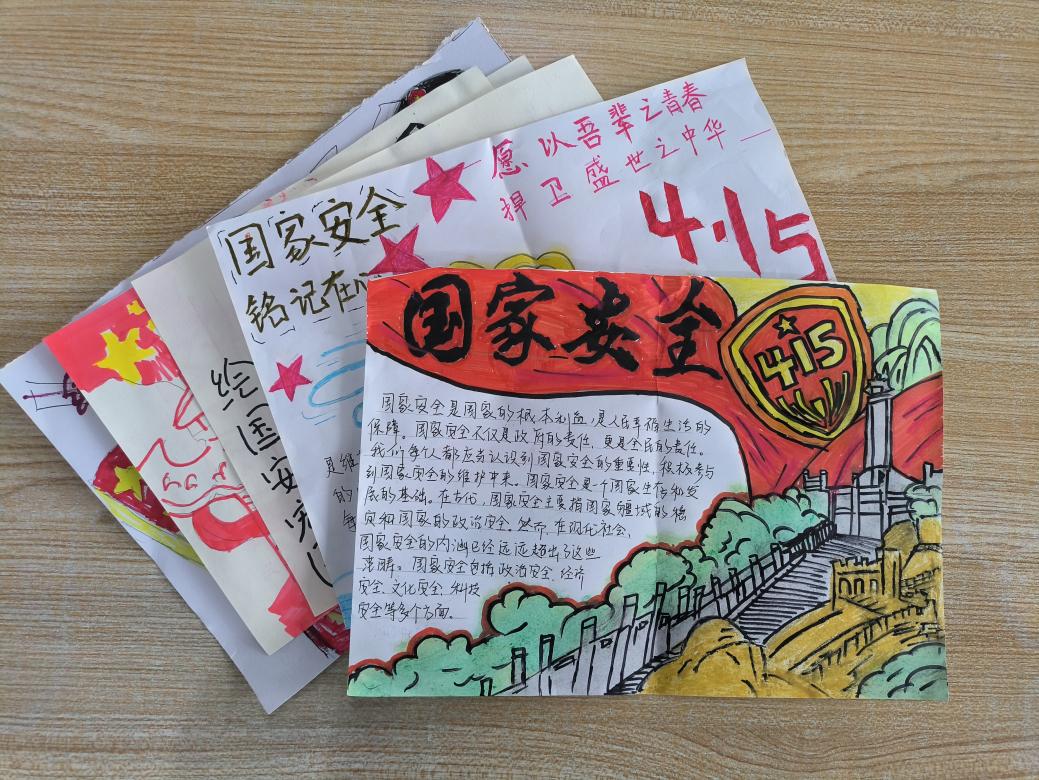 愿以吾辈之青春
捍卫盛世之中华
4·15
国家安全
铭记在心
绘国安
国家安全
415
国家安全是国家的根本利益,是人民幸福生活的
保障。国家安全不仅是政府的责任,更是全民的责任。
我们每个人都应当认识到国家安全的重要性,积极参与
到国家安全的维护中来。国家安全是一个国家生存和发
展的基础。在古代,国家安全主要指国家疆域的稳
定和国家的政治安全。然而,在现代社会,
国家安全的内涵已经远远超出了这些
范畴。国家安全包括政治安全、经济
安全、文化安全、科技
安全等多个方面。
是维
的